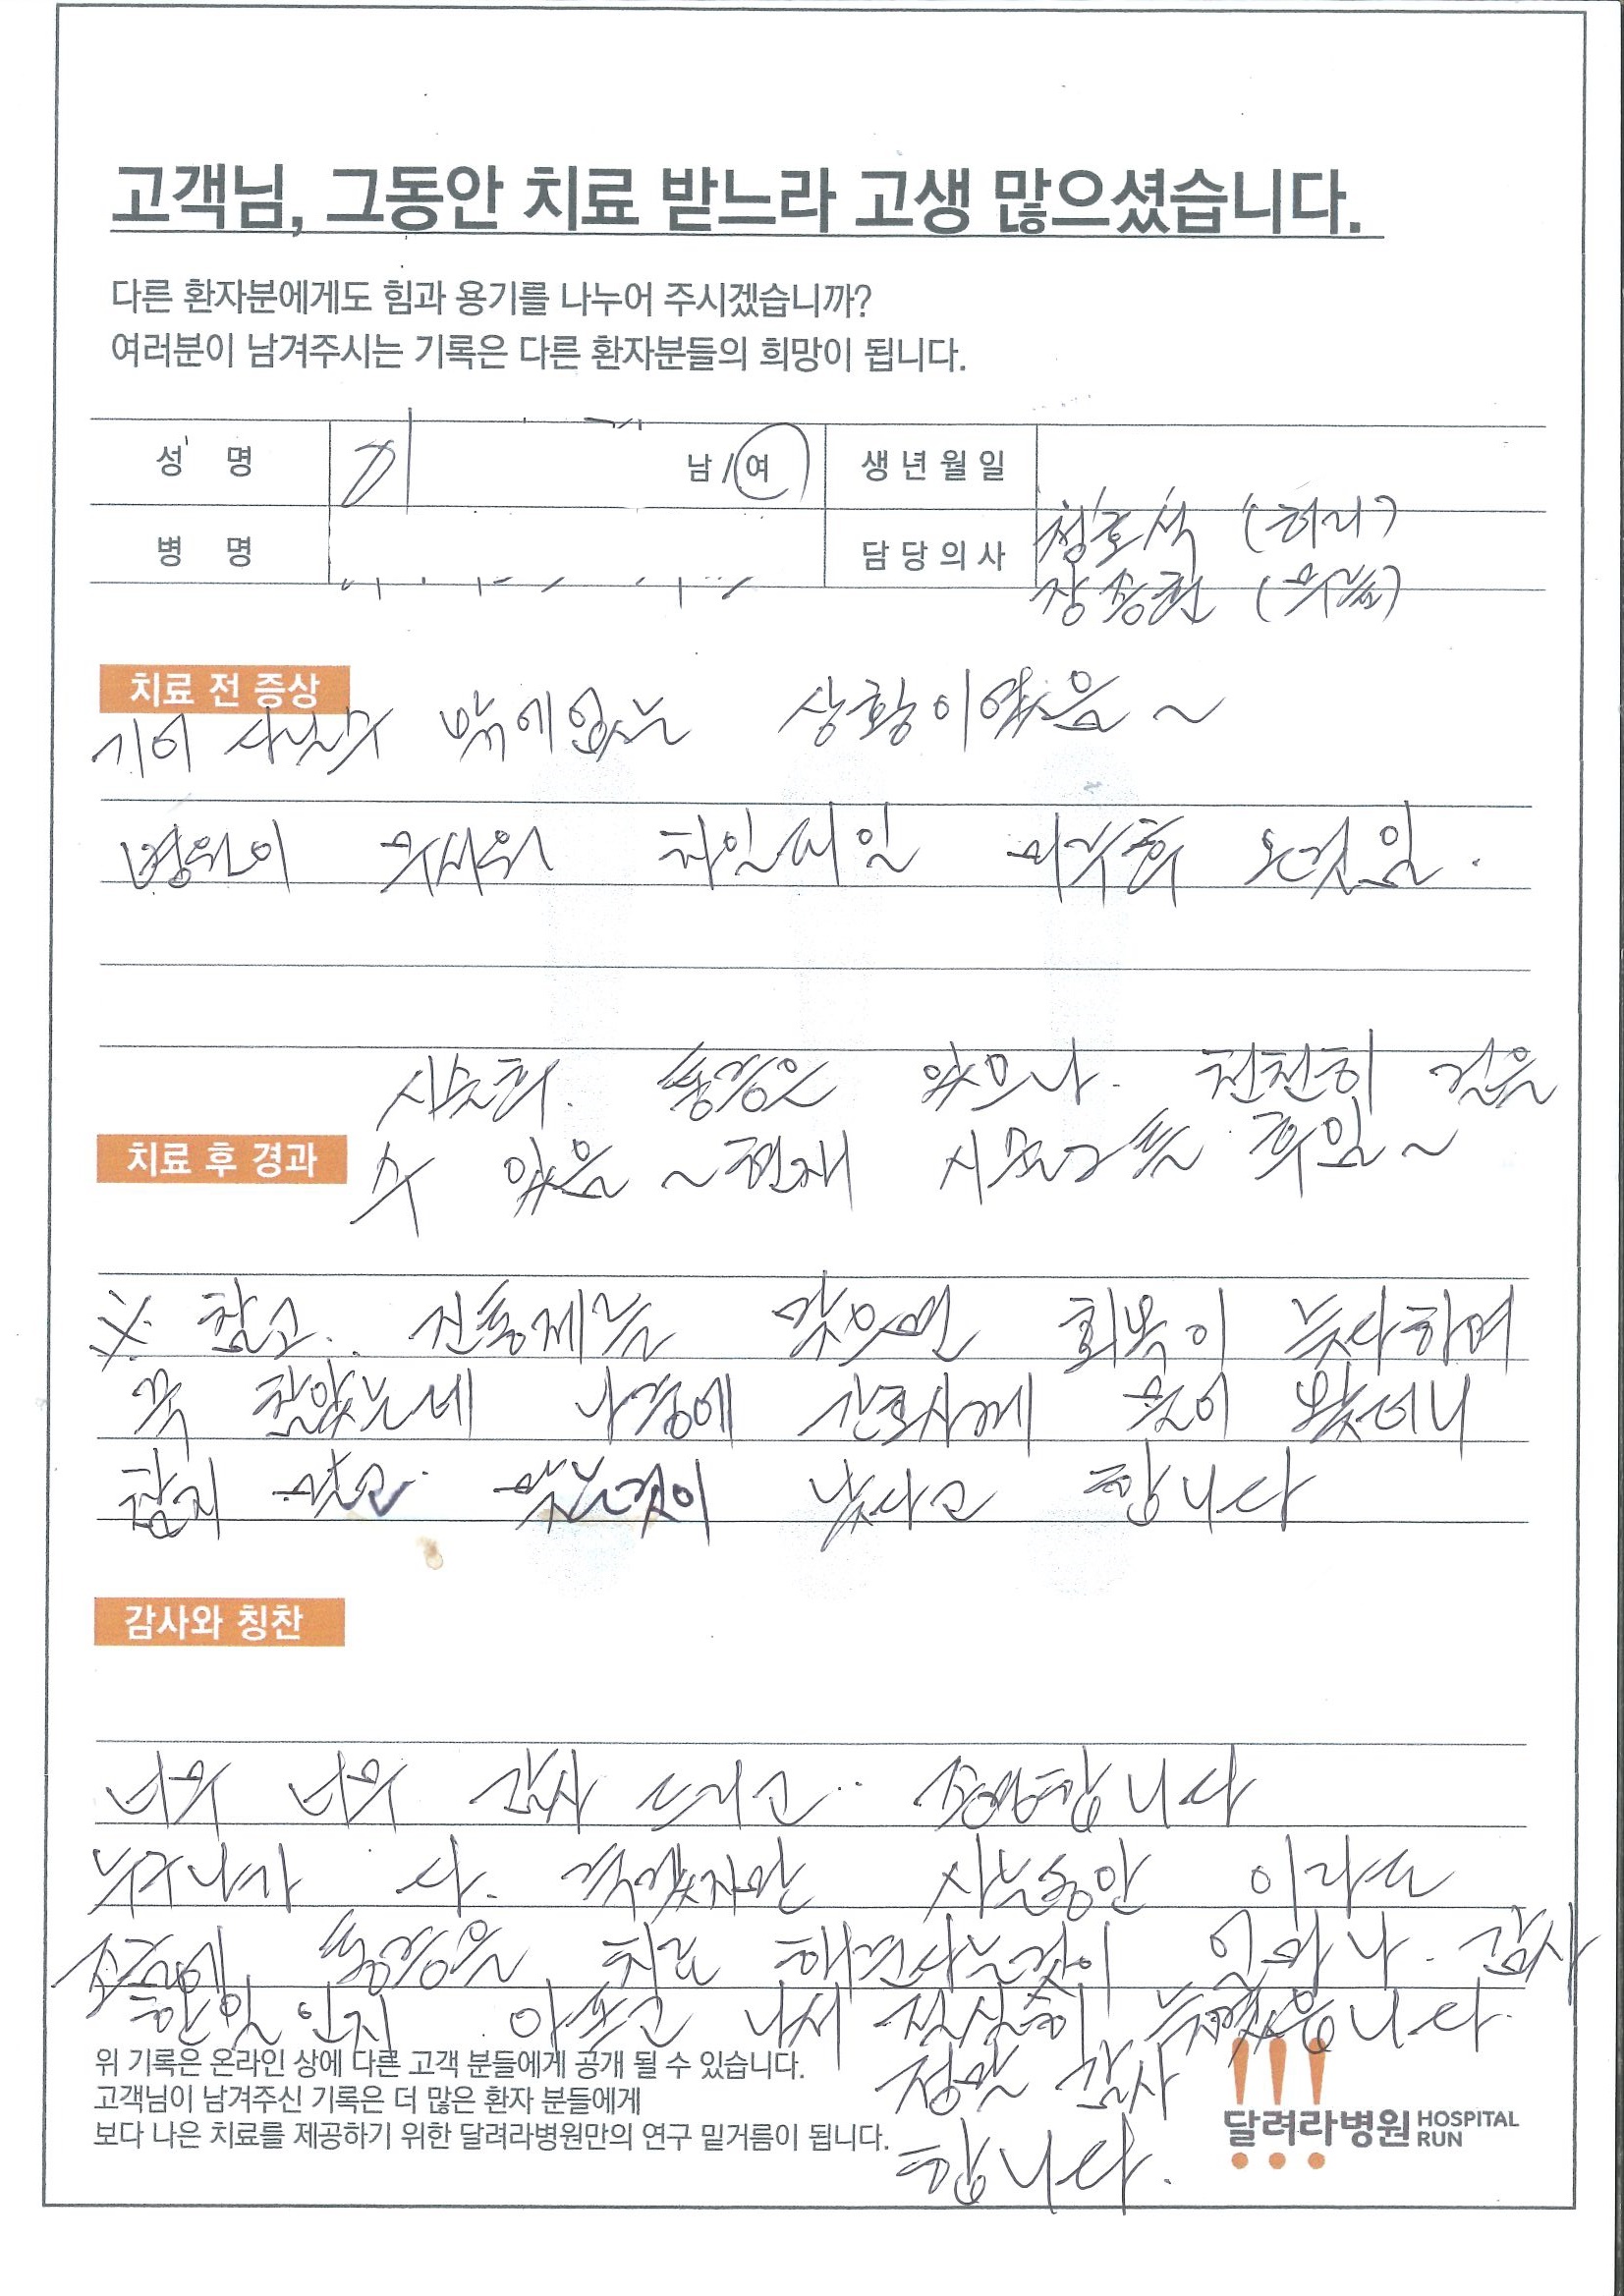 고객님, 그동안 치료 받느라 고생 많으셨습니다.
다른 환자분에게도 힘과 용기를 나누어 주시겠습니까?
여러분이 남겨주시는 기록은 다른 환자분들의 희망이 됩니다.
성 명 남 / 여 생 년 월 일
병 명 담 당 의 사 정호석 (허리)
(무릎)
치료 전 증상
기어 다닐수 밖에 없는 상황이였음~
병원이 무서워 차일피일 미루다 온것임.
시술후. 통증은 있으나. 천천히 걸을
치료 후 경과
수 있음 ~ 현재 시술 2틀 후임~
※ 참고. 진통제를 맞으면 회복이 늦다하며
꾹 참았는데 나중에 간호사께 물어 봤더니
참지 말고. 맞는것이 낫다고 합니다
감사와 칭찬
너무 너무 감사 드리고.. 존경합니다
누구나가 다. 죽겠지만 사는동안 이라도
조금에 통증을 치료 해준다는것이 얼마나. 감사
한일인지 아프고 나서 절실히 느꼈읍니다.
정말 감사
합니다.
위 기록은 온라인 상에 다른 고객 분들에게 공개 될 수 있습니다.
고객님이 남겨주신 기록은 더 많은 환자 분들에게
보다 나은 치료를 제공하기 위한 달려라병원만의 연구 밑거름이 됩니다.
달려라병원 HOSPITAL
RUN